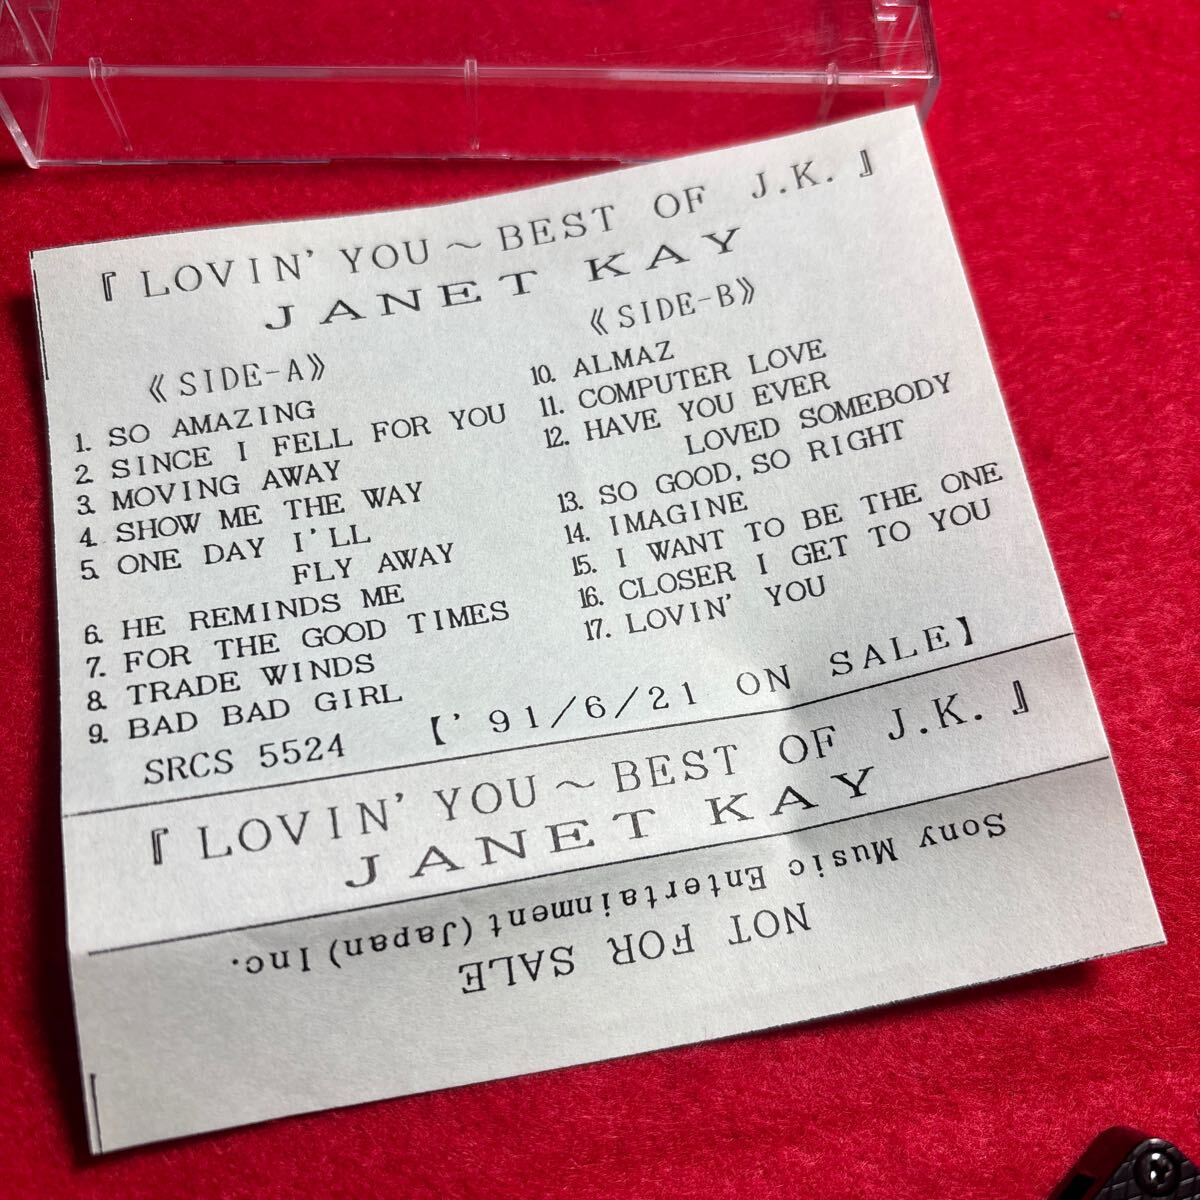 『LOVIN' YOU～BEST OF J.K.』
JANET KAY
《SIDE-A》
1. SO AMAZING
2. SINCE I FELL FOR YOU
3. MOVING AWAY
4. SHOW ME THE WAY
5. ONE DAY I'LL
FLY AWAY
6. HE REMINDS ME
7. FOR THE GOOD TIMES
8. TRADE WINDS
9. BAD BAD GIRL
《SIDE-B》
10. ALMAZ
11. COMPUTER LOVE
12. HAVE YOU EVER
LOVED SOMEBODY
13. SO GOOD, SO RIGHT
14. IMAGINE
15. I WANT TO BE THE ONE
16. CLOSER I GET TO YOU
17. LOVIN' YOU
SRCS 5524 【'91/6/21 ON SALE】
『LOVIN' YOU～BEST OF J.K.』
JANET KAY
Sony Music Entertainment (Japan) Inc.
NOT FOR SALE